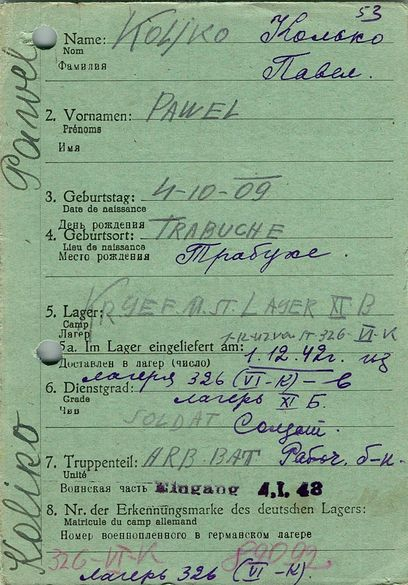 53
Name: KOLJKO Колько
Nom
Фамилия Павел.
2. Vornamen: PAWEL
Prénoms
Имя
3. Geburtstag: 4-10-09
Date de naissance
День рождения
4. Geburtsort: TRABUCHE
Lieu de naissance
Место рождения Трабухе.
5. Lager: KRGEF M. ST. LAGER XI B
Camp
Лагерь 1-12-42 von ST 326 VI-K
5a. Im Lager eingeliefert am: 1.12.42г. из
Доставлен в лагер (число)
лагеря 326 (VI-К) – в
6. Dienstgrad: лагерь XI Б.
Grade
Чин
SOLDAT Солдат.
7. Truppenteil: ARB. BAT Рабоч. б-н.
Unité
Воинская часть Eingang 4. I. 43
8. Nr. der Erkennungsmarke des deutschen Lagers:
Matricule du camp allemand
Номер военнопленного в германском лагере
326-VI-K 89092
лагерь 326 (VI-К)
Koliko Pawel